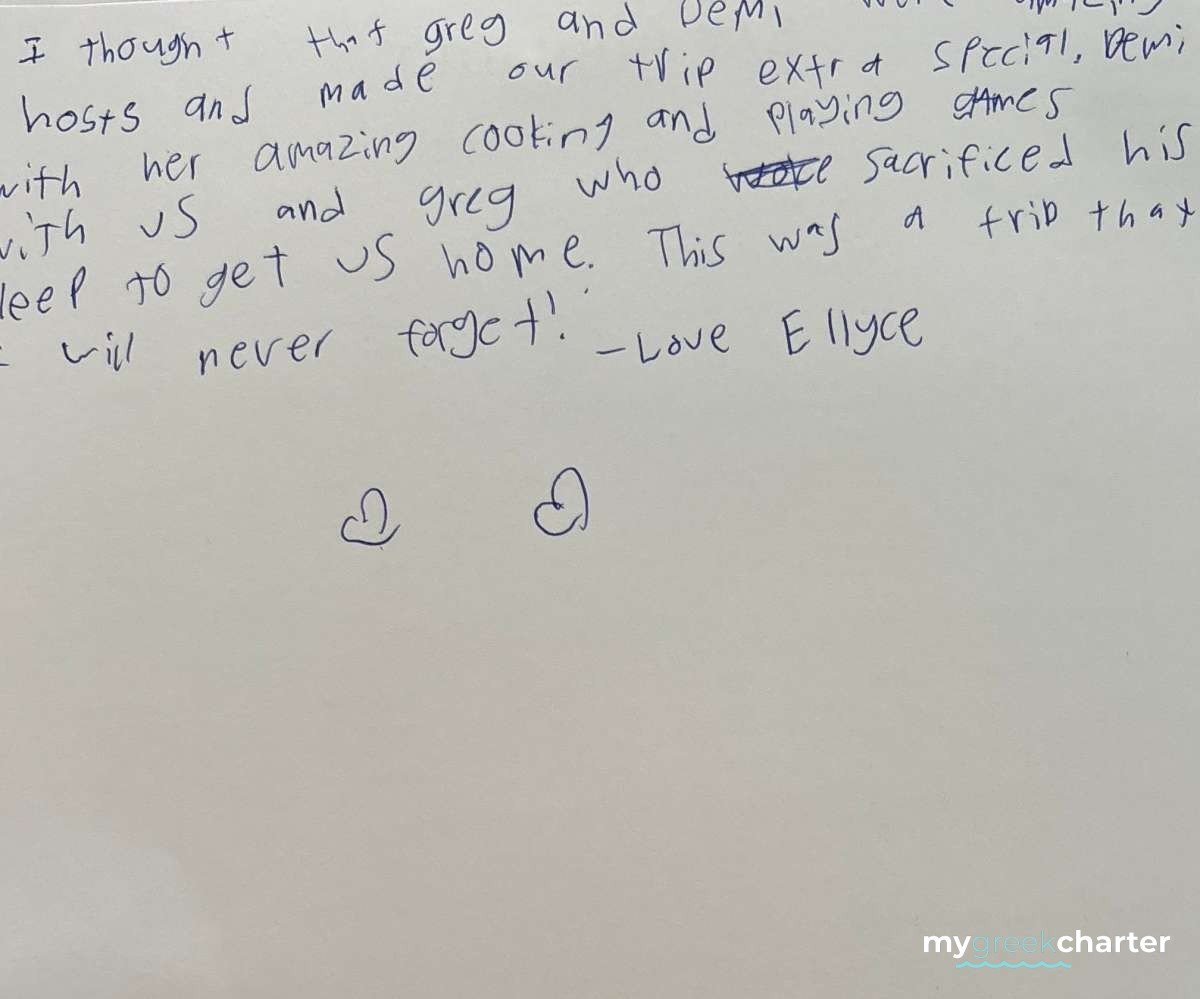 I thought that greg and Demi were amazing
hosts and made our trip extra special. Demi
with her amazing cooking and playing games
with us and greg who sacrificed his
leep to get us home. This was a trip that
will never forget! - Love Ellyce
mygreekcharter